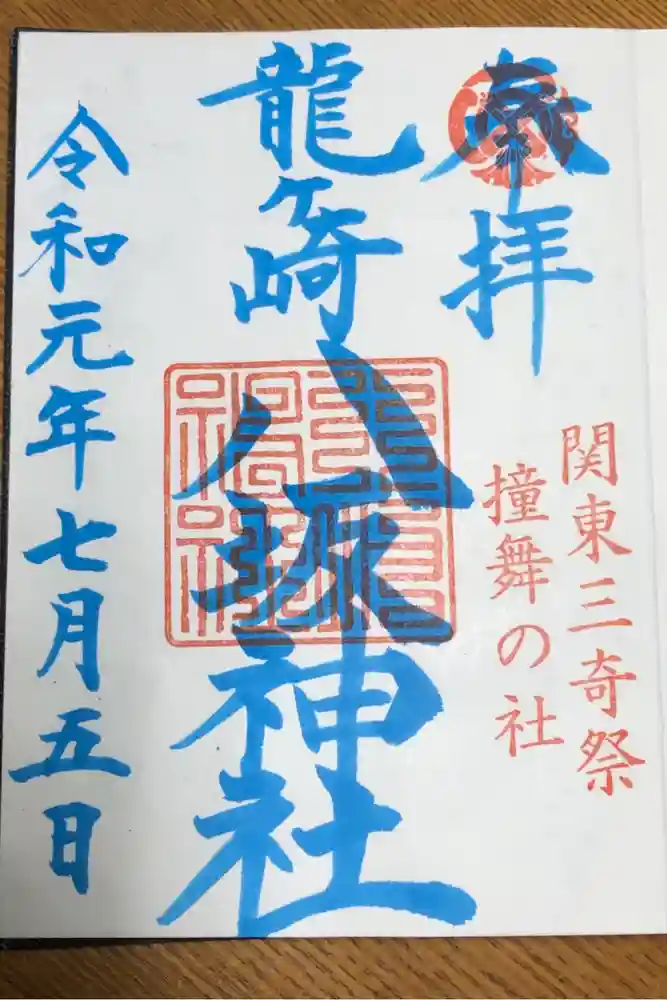 奉拝
関東三奇祭
撞舞の社
龍ケ崎
八坂神社
令和元年七月五日